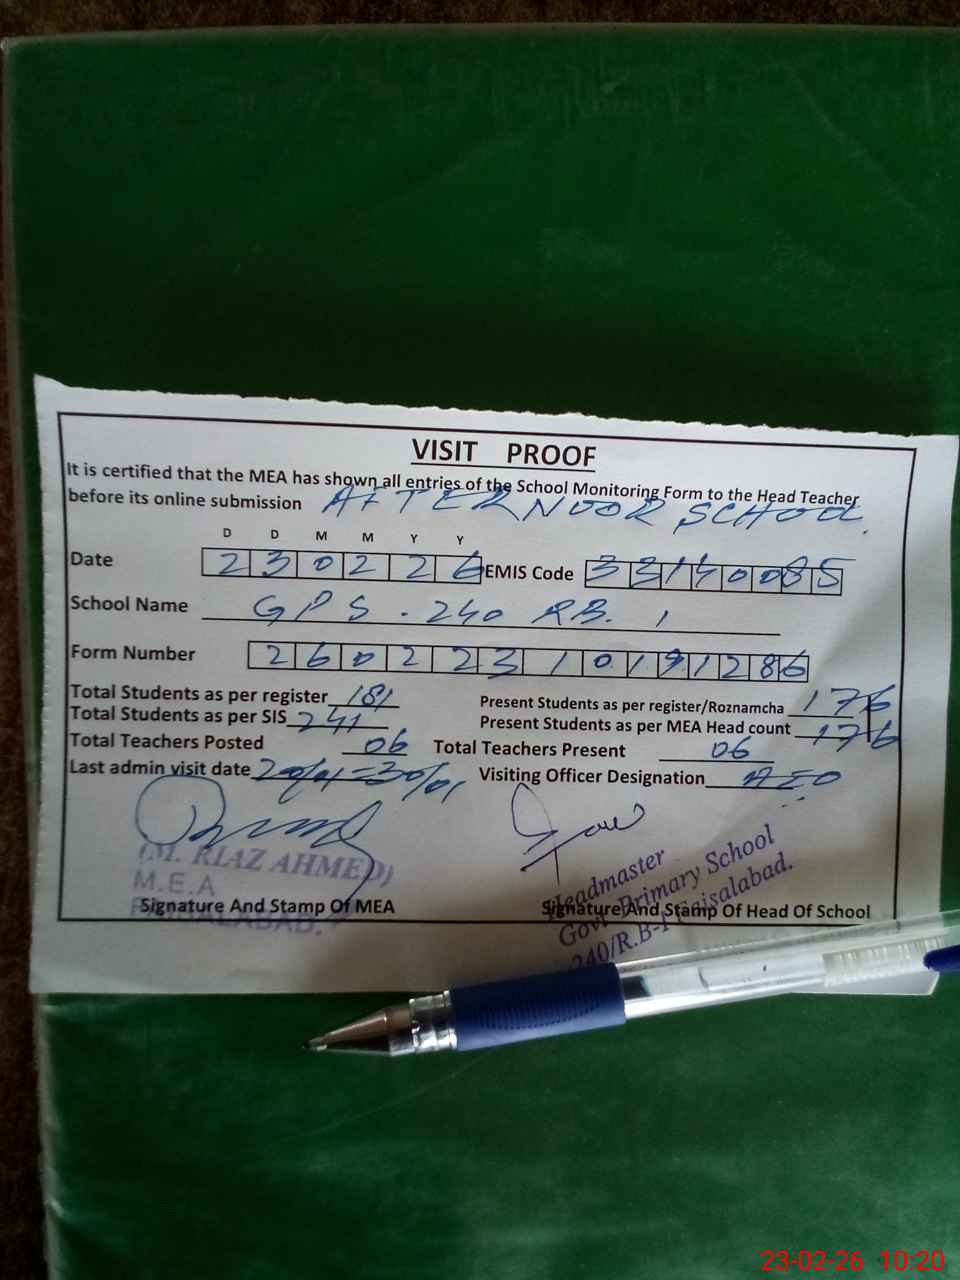 VISIT PROOF
It is certified that the MEA has shown all entries of the School Monitoring Form to the Head Teacher
before its online submission AFTER NOOR SCHOOL
D D M M Y Y
Date 2 3 0 2 2 6 EMIS Code 3 3 1 4 0 0 8 5
School Name GPS. 240 RB. 1
Form Number 2 6 0 2 2 3 1 0 1 9 1 2 8 6
Total Students as per register 181 Present Students as per register/Roznamcha 176
Total Students as per SIS 241 Present Students as per MEA Head count 176
Total Teachers Posted 06 Total Teachers Present 06
Last admin visit date 30/01 Visiting Officer Designation AEO
(M. RIAZ AHMED)
M.E.A
FAISALABAD.
Signature And Stamp Of MEA
Headmaster
Govt. Primary School
240/R.B-I Faisalabad.
Signature And Stamp Of Head Of School
23-02-26 10:20